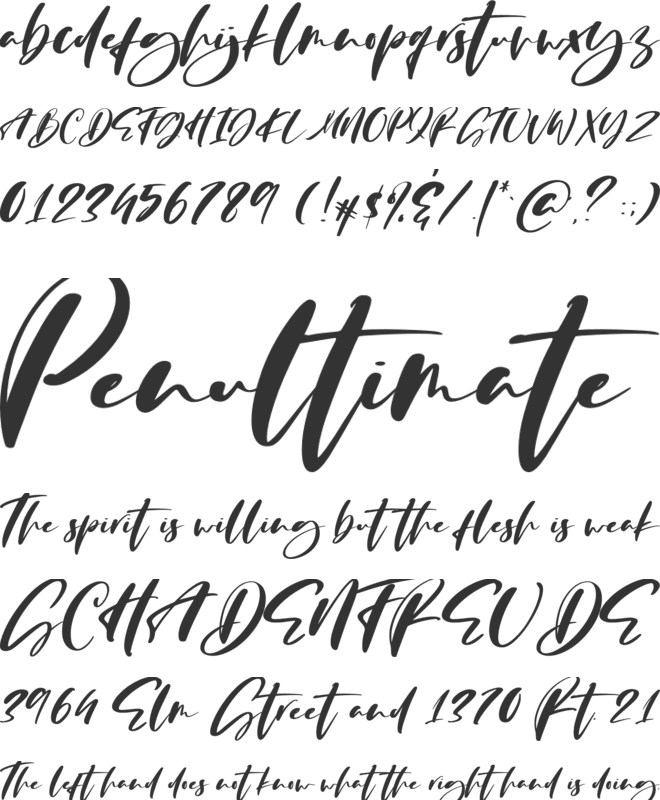 abcdefghijklmnopqrstuvwxyz
ABCDEFGHIJKLMNOPQRSTUVWXYZ
0123456789 (!#$%&/.|*.@,?:;)
Penultimate
The spirit is willing but the flesh is weak
SCHADENFREUDE
3964 Elm Street and 1370 Rt. 21
The left hand does not know what the right hand is doing.